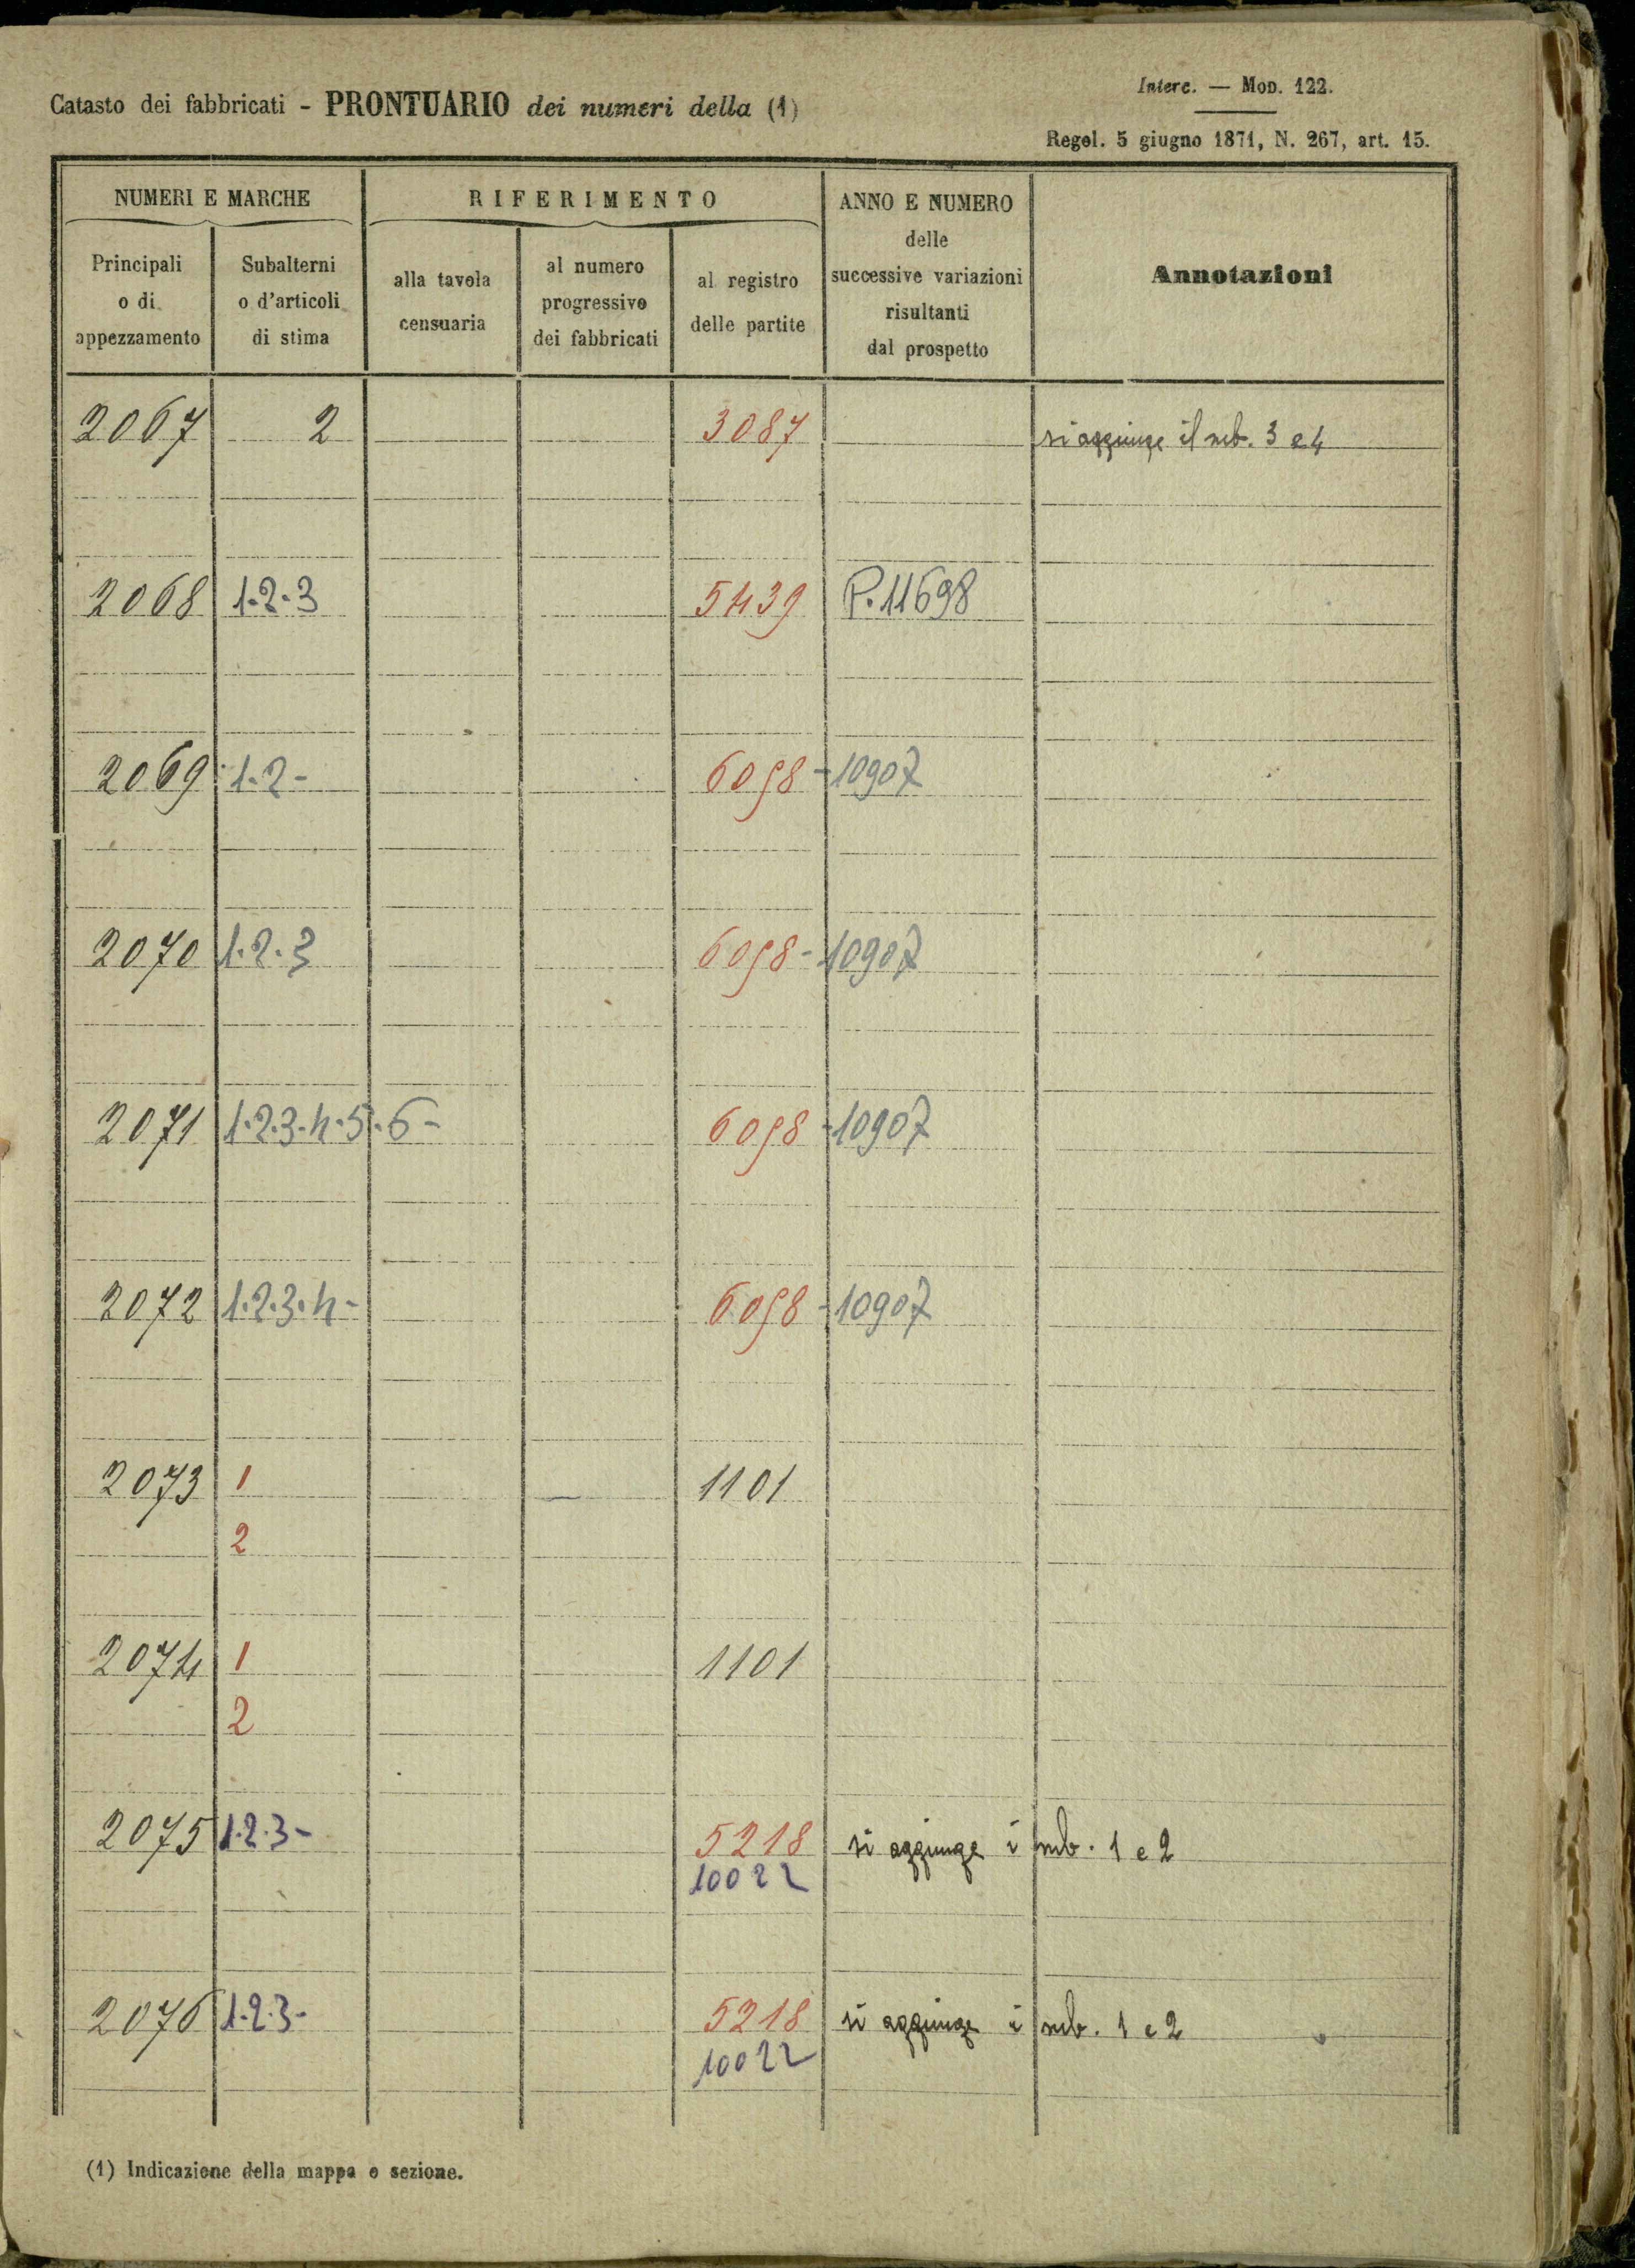 Interc. — Mod. 122.
Catasto dei fabbricati - PRONTUARIO dei numeri della (1)
Regol. 5 giugno 1871, N. 267, art. 15.
NUMERI E MARCHE
RIFERIMENTO
ANNO E NUMERO
delle
successive variazioni
risultanti
dal prospetto
Annotazioni
Principali
o di
appezzamento
Subalterni
o d'articoli
di stima
alla tavola
censuaria
al numero
progressivo
dei fabbricati
al registro
delle partite
2067 2 3087 si aggiunge il sub. 3 e 4
2068 1-2-3 5439 P. 11698
2069 1-2- 6098 - 10907
2070 1-2-3 6098 - 10907
2071 1-2-3-4-5-6- 6098 - 10907
2072 1-2-3-4- 6098 - 10907
2073 1 1101
2
2074 1 1101
2
2075 1-2-3- 5218 si aggiunge i sub. 1 e 2
10022
2076 1-2-3- 5218 si aggiunge i sub. 1 e 2
10022
(1) Indicazione della mappa o sezione.